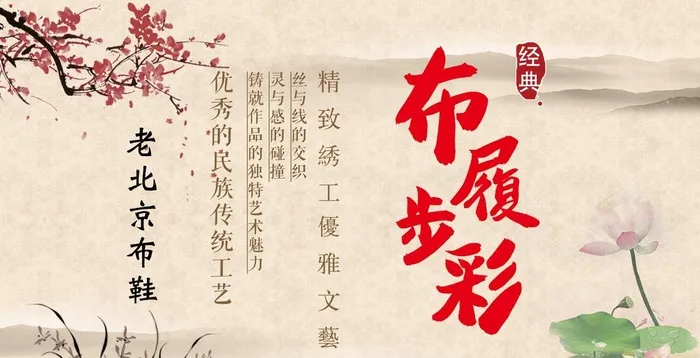 经典
布履步彩
精致綉工優雅文藝
丝与线的交织
灵与感的碰撞
铸就作品的独特艺术魅力
优秀的民族传统工艺
老北京布鞋